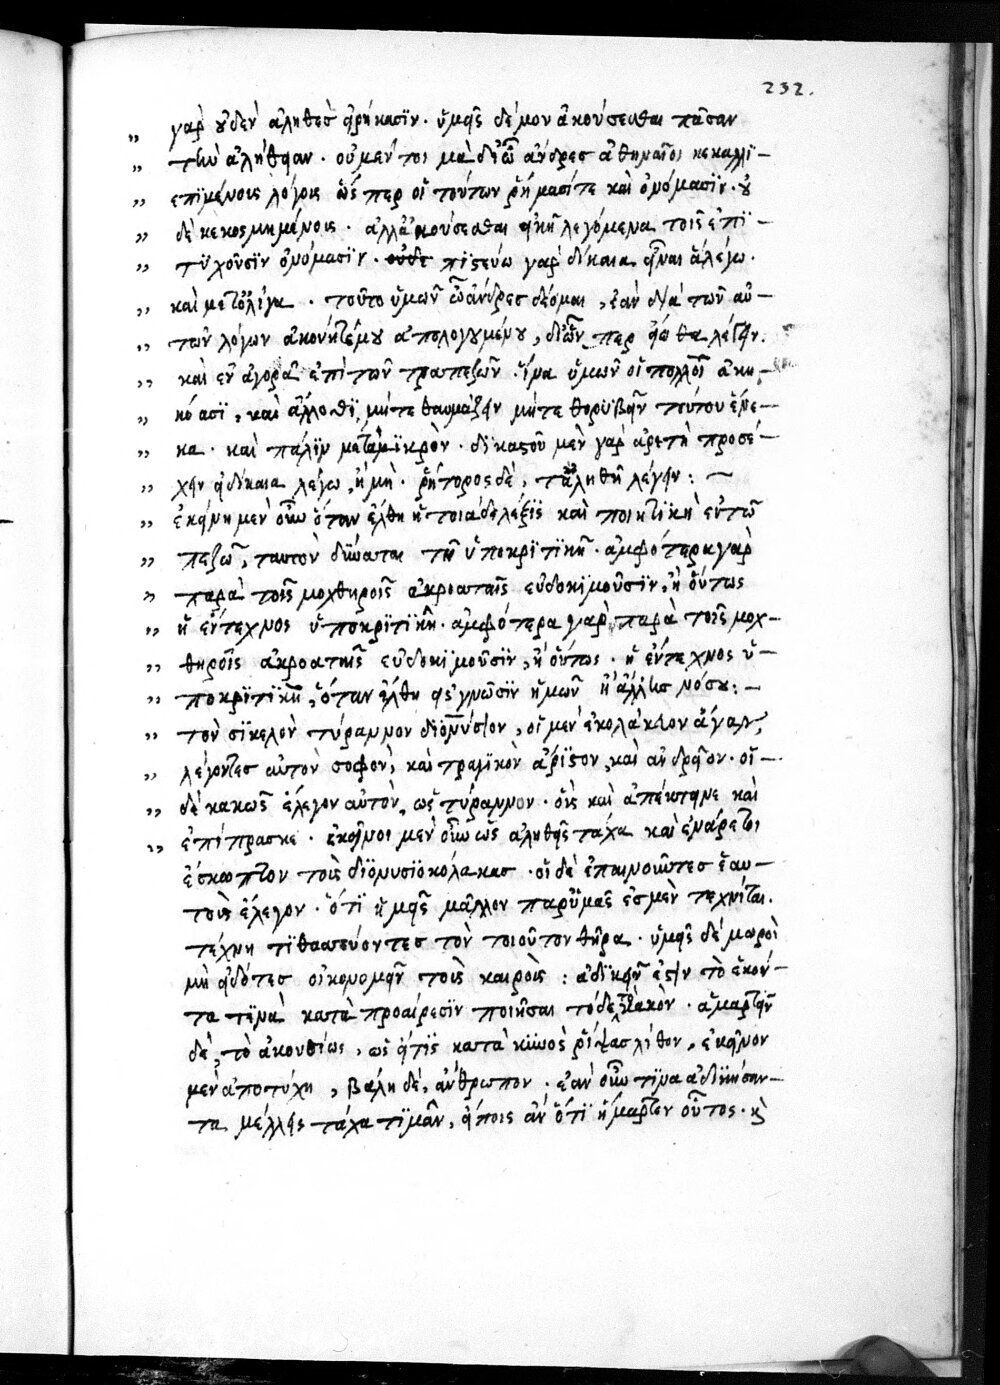 232.
γὰρ οὐδὲν ἀληθὲς εἰρήκασϊν · ὑμεῖς δέ μου ἀκούσεσθαι πᾶσαν
τὴν ἀλήθειαν · οὐ μέν τοι μὰ δί' ὦ ἄνδρες ἀθηναῖοι κεκαλλϊ–
επϊμένοις λόγοις ὥς περ οἱ τούτων ῥήμασί τε καὶ ὀνόμασϊν · οὐ
δὲ κεκοσμημένοις · ἀλλὰ ἀκούσεσθαι εἰκῆ λεγόμενα τοῖς ἐπϊ–
τϋχοῦσϊν ὀνόμασϊν · πϊστεύω γὰρ δίκαια εἶναι ἃ λέγω ·
καὶ μετ' ὀλίγα · τοῦτο ὑμῶν ὦ ἄνδρες δέομαι, ἐὰν διὰ τῶν αὐ–
τῶν λόγων ἀκούητέ μου ἀπολογουμένου, δι' ὧν περ εἴωθα λέγειν.
καὶ ἐν ἀγορᾷ ἐπὶ τῶν τραπεζῶν ἵνα ὑμῶν οἱ πολλοὶ ἀκη–
κόασϊ, καὶ ἄλλοθϊ, μήτε θαυμάζειν μήτε θορϋβεῖν τούτου ἕνε–
κα · καὶ πάλϊν μετὰ μϊκρὸν · δϊκαστοῦ μὲν γὰρ ἀρετὴ προσέ–
χειν εἰ δίκαια λέγω, ἢ μὴ · ῥήτορος δὲ, τἀληθῆ λέγειν : ~
ἐκείνη μὲν οὖν ὅταν ἔλθη ἡ τοιάδε λέξϊς καὶ ποιητϊκὴ ἐν τῶ
πεζῶ, ταυτὸν δύναται τῆ ὑποκρϊτϊκῆ · ἀμφότερα γὰρ
παρὰ τοῖς μοχθηροῖς ἀκροαταῖς εὐδοκϊμοῦσϊν, ἢ οὕτως
ἡ ἔντεχνος ὑποκρϊτϊκὴ · ἀμφότερα γὰρ παρὰ τοῖς μοχ–
θηροῖς ἀκροαταῖς εὐδοκϊμοῦσϊν, ἢ οὕτως · ἡ ἔντεχνος ὑ–
ποκρϊτϊκὴ, ὅταν ἔλθη εἰς γνῶσϊν ἡμῶν νόσου : –
τὸν σϊκελὸν τύραννον διονύσϊον, οἱ μὲν ἐκολάκευον ἄγαν,
λέγοντες αὐτὸν σοφὸν, καὶ τραγϊκὸν ἄρϊστον, καὶ ἀνδρεῖον · οἱ –
δὲ κακῶς ἔλεγον αὐτὸν, ὡς τύραννον · οὓς καὶ ἀπέκτεινε καὶ
ἐπίπρασκε · ἐκεῖνοι μὲν οὖν ὡς ἀληθεῖς τάχα καὶ ἐνάρετοι
ἔσκωπτον τοὺς διονυσϊοκόλακας · οἱ δὲ ἐπαινοῦντες ἑαυ–
τοὺς ἔλεγον · ὅτϊ ἡμεῖς μᾶλλον παρ' ὑμᾶς ἐσμὲν τεχνῖται.
τέχνη τϊθασεύοντες τὸν τοιοῦτον θῆρα · ὑμεῖς δὲ μωροὶ
μὴ εἰδότες οἰκονομεῖν τοὺς καιροὺς : ἀδϊκεῖν ἐστὶν τὸ ἑκόν–
τα τϊνὰ κατὰ προαίρεσϊν ποιῆσαι τόδε κακὸν · ἁμαρτεῖν
δὲ, τὸ ἀκουσίως, ὡς εἴ τϊς κατὰ κυνὸς ῥίψας λίθον, ἐκείνου
μὲν ἀποτύχη, βάλη δὲ, ἄνθρωπον · ἐὰν οὖν τϊνα ἀδϊκήσαν–
τα μέλλης τάχα τϊμᾶν, εἴποις ἂν ὅτϊ ἥμαρτεν οὗτος · κὶ